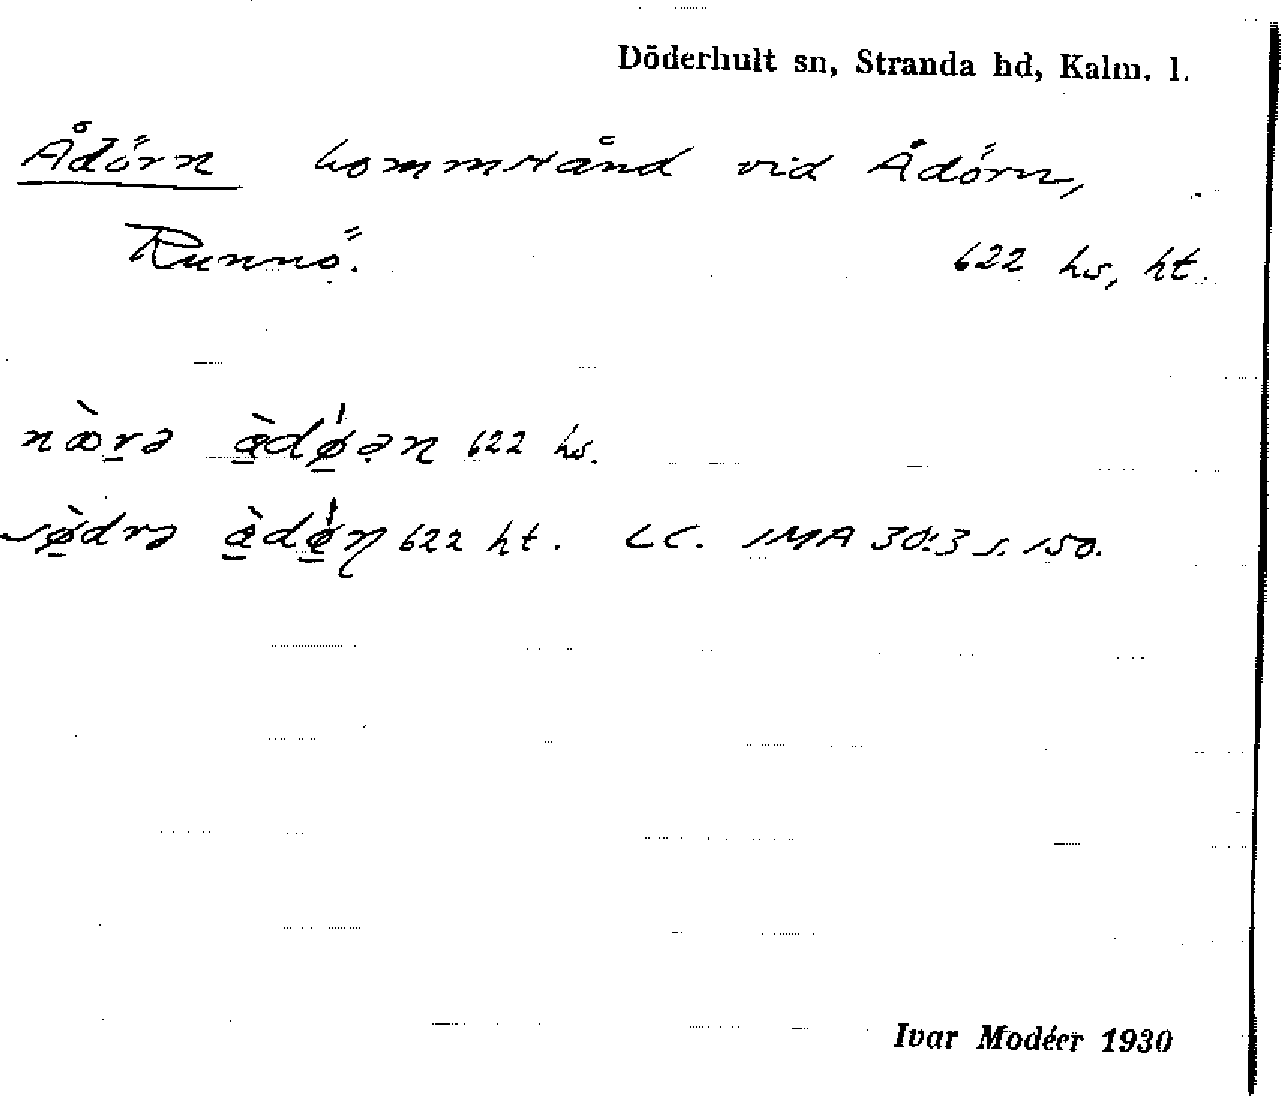 Döderhult sn, Stranda hd, Kalm. l.
Ådörn hommstånd vid Ådörn,
Runnö. 622 hs, ht.
næ̀rə àdǿən 622 hs.
sø̀drə àdǿn 622 ht. LC. SMÅ 30:3 s. 150.
Ivar Modéer 1930